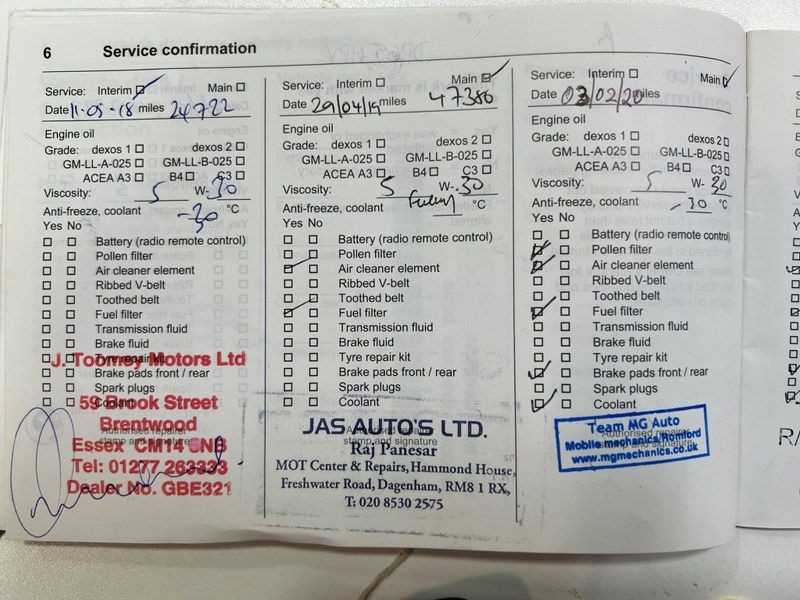 6 Service confirmation
Service: Interim Main
Date 11-05-18 miles 24722
Engine oil
Grade: dexos 1 dexos 2
GM-LL-A-025 GM-LL-B-025
ACEA A3 B4 C3
Viscosity: 5 W- 30
Anti-freeze, coolant -30 °C
Yes No
Battery (radio remote control)
Pollen filter
Air cleaner element
Ribbed V-belt
Toothed belt
Fuel filter
Transmission fluid
Brake fluid
Tyre repair kit
Brake pads front / rear
Spark plugs
Coolant
Authorised repairer
stamp and signature
J. Toomey Motors Ltd
59 Brook Street
Brentwood
Essex CM14 5NB
Tel: 01277 263333
Dealer No. GBE321
Service: Interim Main
Date 29/04/19 miles 47380
Engine oil
Grade: dexos 1 dexos 2
GM-LL-A-025 GM-LL-B-025
ACEA A3 B4 C3
Viscosity: 5 W-. 30
Anti-freeze, coolant °C
Yes No
Battery (radio remote control)
Pollen filter
Air cleaner element
Ribbed V-belt
Toothed belt
Fuel filter
Transmission fluid
Brake fluid
Tyre repair kit
Brake pads front / rear
Spark plugs
Coolant
Authorised repairer
stamp and signature
JAS AUTO'S LTD.
Raj Panesar
MOT Center & Repairs, Hammond House,
Freshwater Road, Dagenham, RM8 1 RX,
T: 020 8530 2575
Service: Interim Main
Date 03/02/20 miles
Engine oil
Grade: dexos 1 dexos 2
GM-LL-A-025 GM-LL-B-025
ACEA A3 B4 C3
Viscosity: 5 W- 30
Anti-freeze, coolant -30 °C
Yes No
Battery (radio remote control)
Pollen filter
Air cleaner element
Ribbed V-belt
Toothed belt
Fuel filter
Transmission fluid
Brake fluid
Tyre repair kit
Brake pads front / rear
Spark plugs
Coolant
Authorised repairer
stamp and signature
Team MG Auto
Mobile mechanics/Romford
www.mgmechanics.co.uk